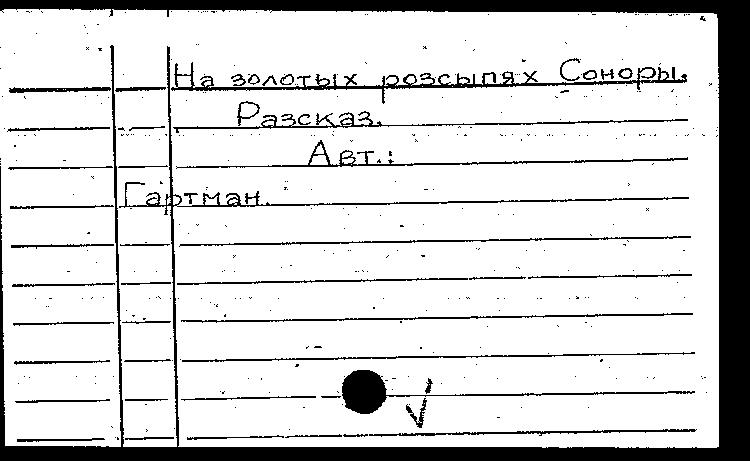 На золотых розсыпях Соноры.
Разсказ.
Авт.:
Гартман.